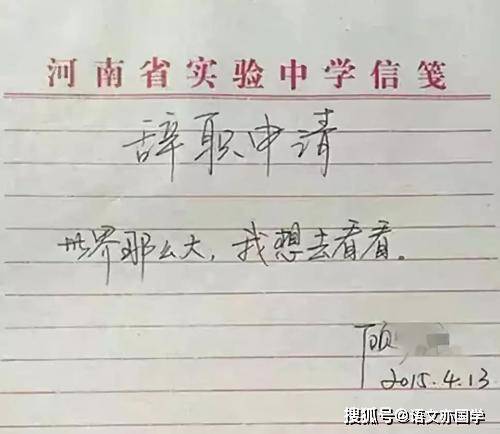 河南省实验中学信笺
辞职申请
世界那么大，我想去看看。
顾
2015.4.13
搜狐号@语文亦国学